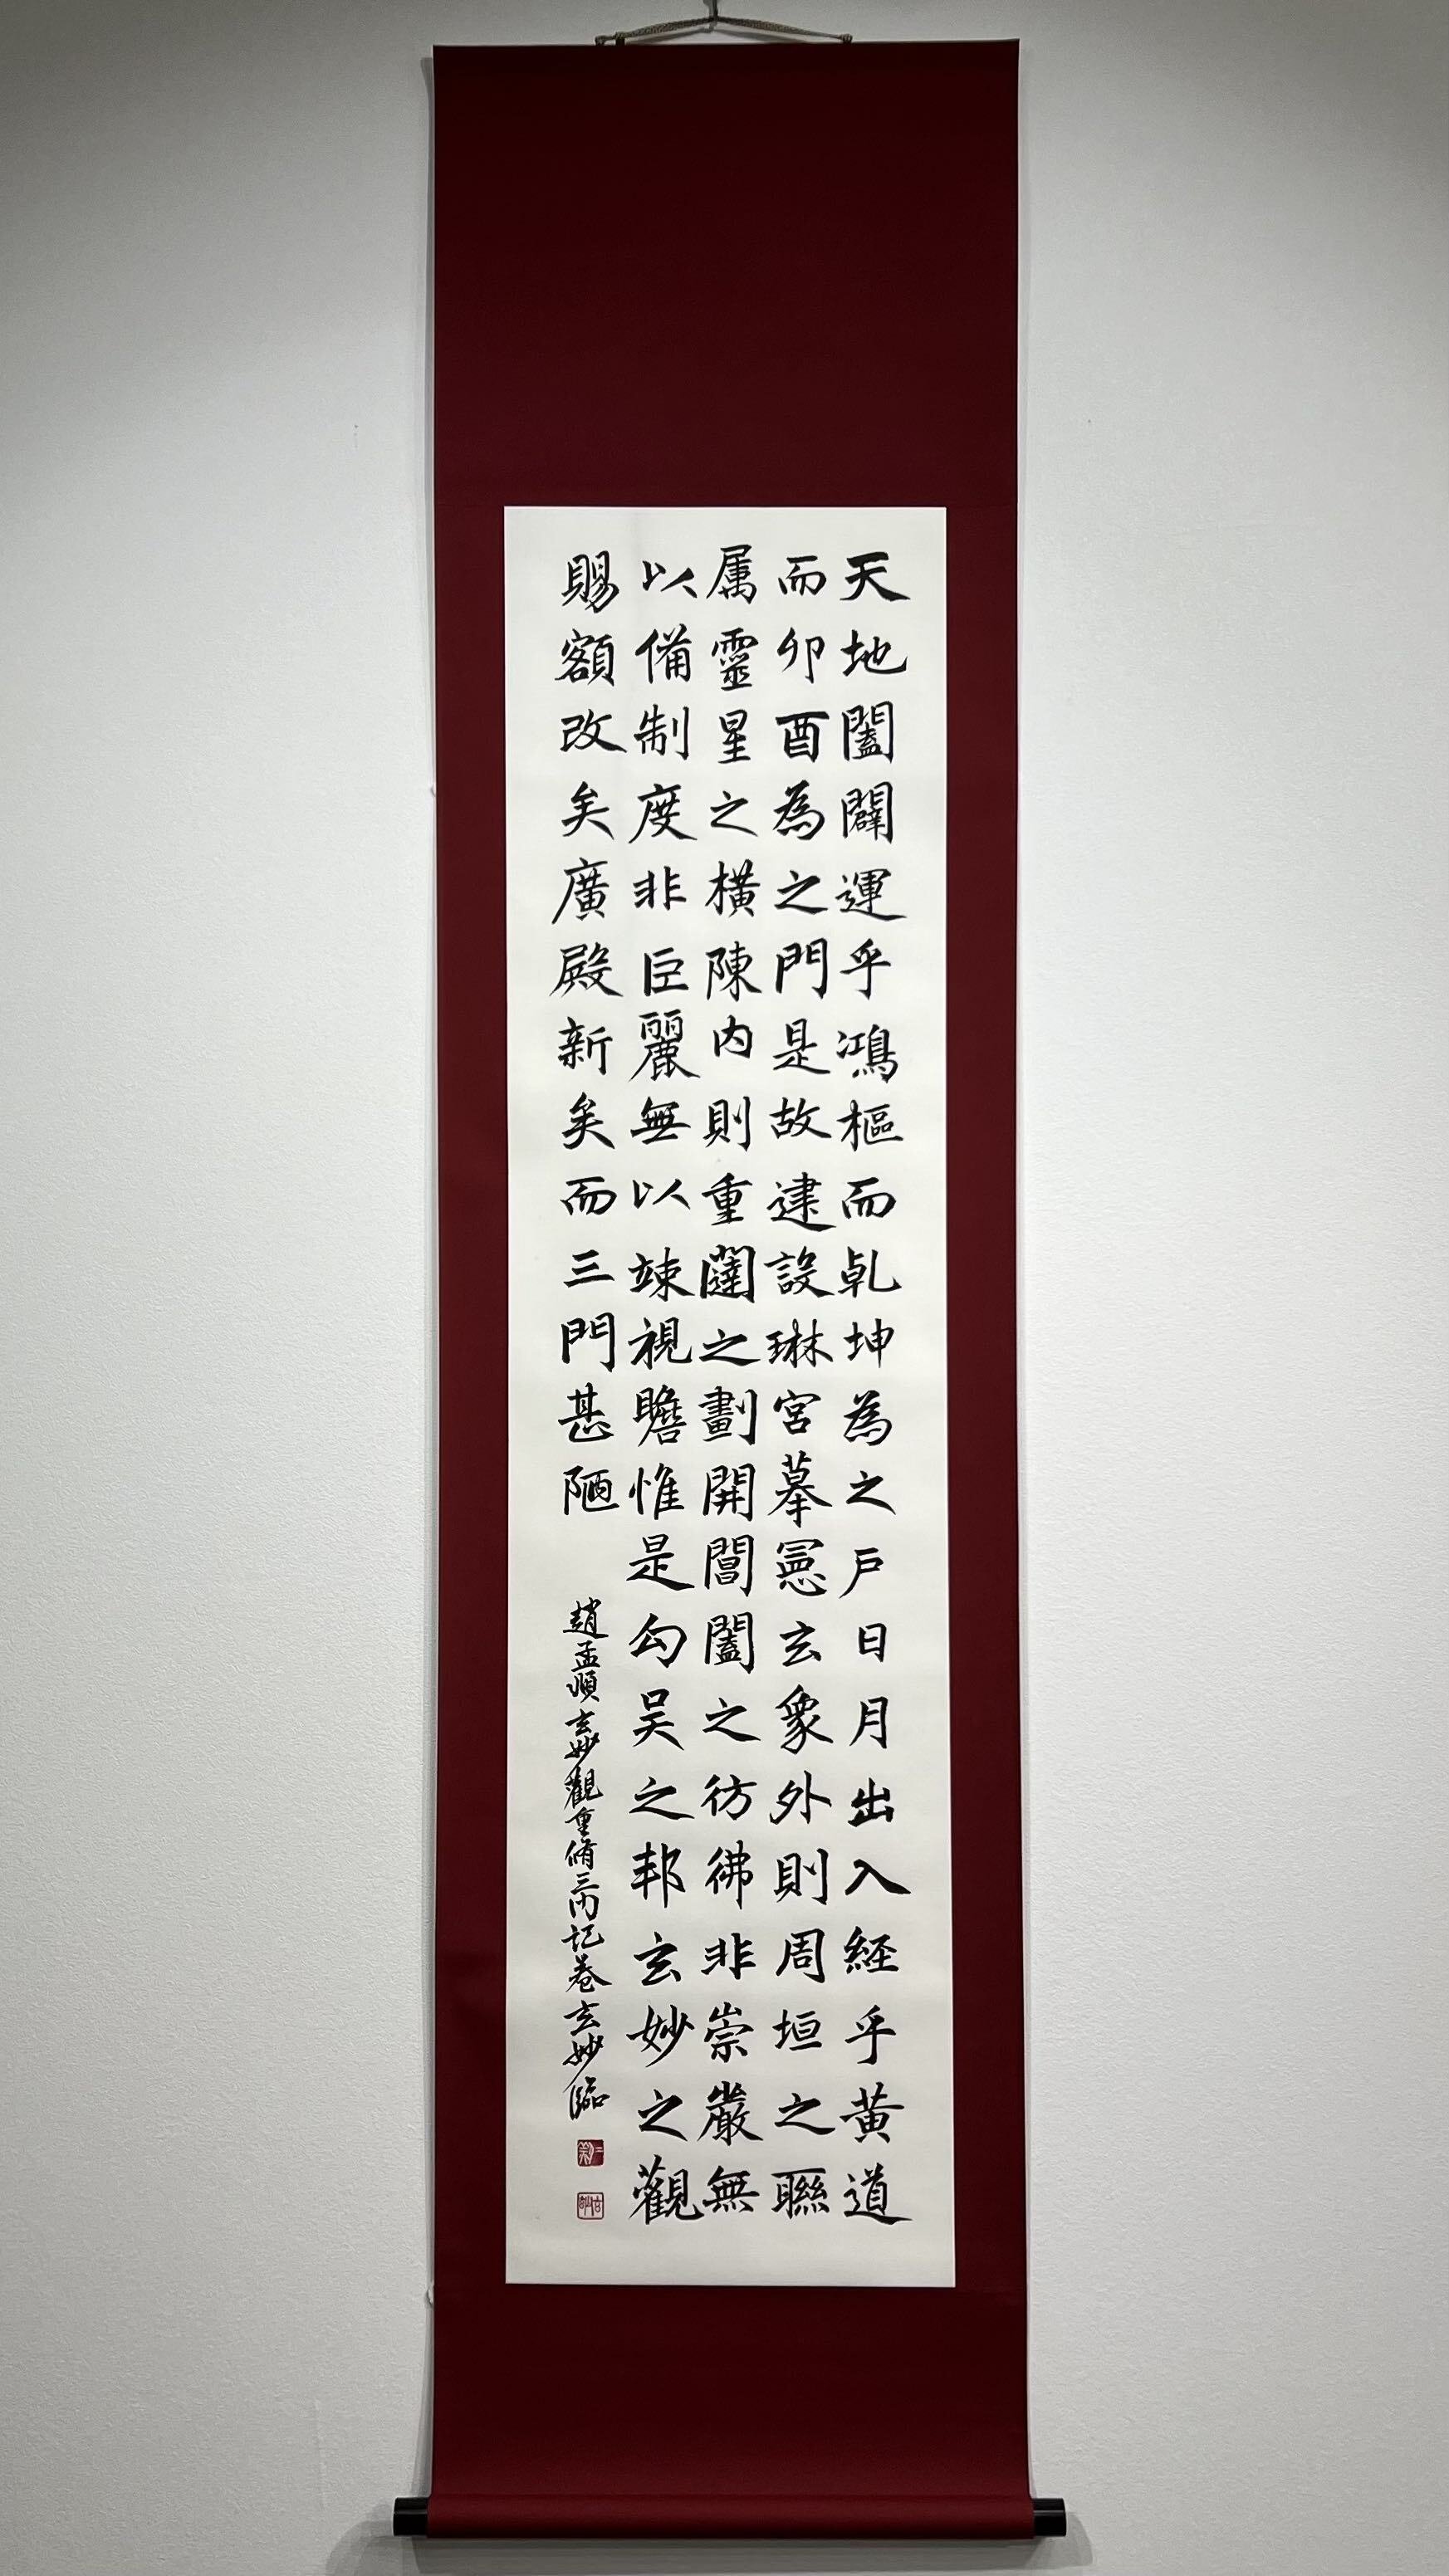 天地闔闢運乎鴻樞而乹坤為之戶日月出入經乎黃道
而卯酉為之門是故建設琳宮摹憲玄象外則周垣之聯
属靈星之橫陳內則重闥之劃開閶闔之彷彿非崇嚴無
以備制度非巨麗無以竦視瞻惟是勾吴之邦玄妙之觀
賜額改矣廣殿新矣而三門甚陋
趙孟頫玄妙觀重脩三門記卷玄妙臨